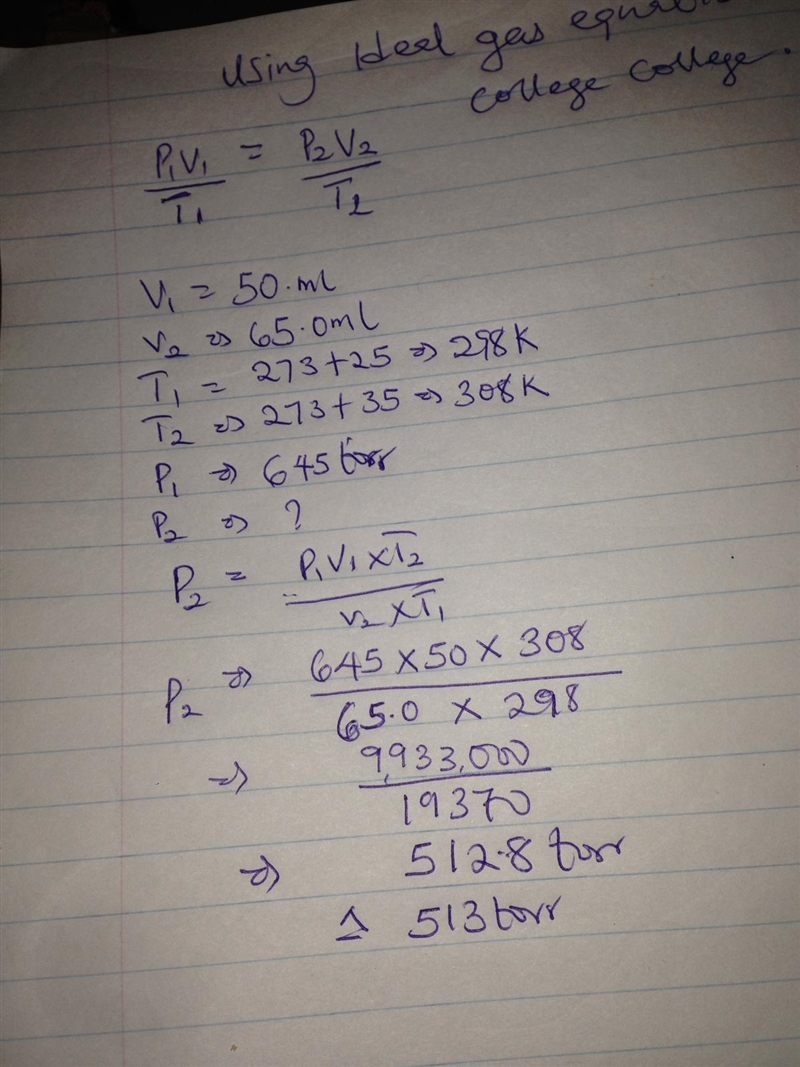 Using Ideal gas equat
college college.
P₁V₁ = P₂V₂
T₁ T₂
V₁ = 50.ml
V₂ ⇒ 65.0ml
T₁ = 273+25 ⇒ 298K
T₂ ⇒ 273+35 ⇒ 308K
P₁ ⇒ 645 torr
P₂ ⇒ ?
P₂ = P₁V₁ x T₂
V₂ x T₁
P₂ ⇒ 645 x 50 x 308
65.0 x 298
⇒ 9,933,000
19370
⇒ 512.8 torr
≏ 513 torr